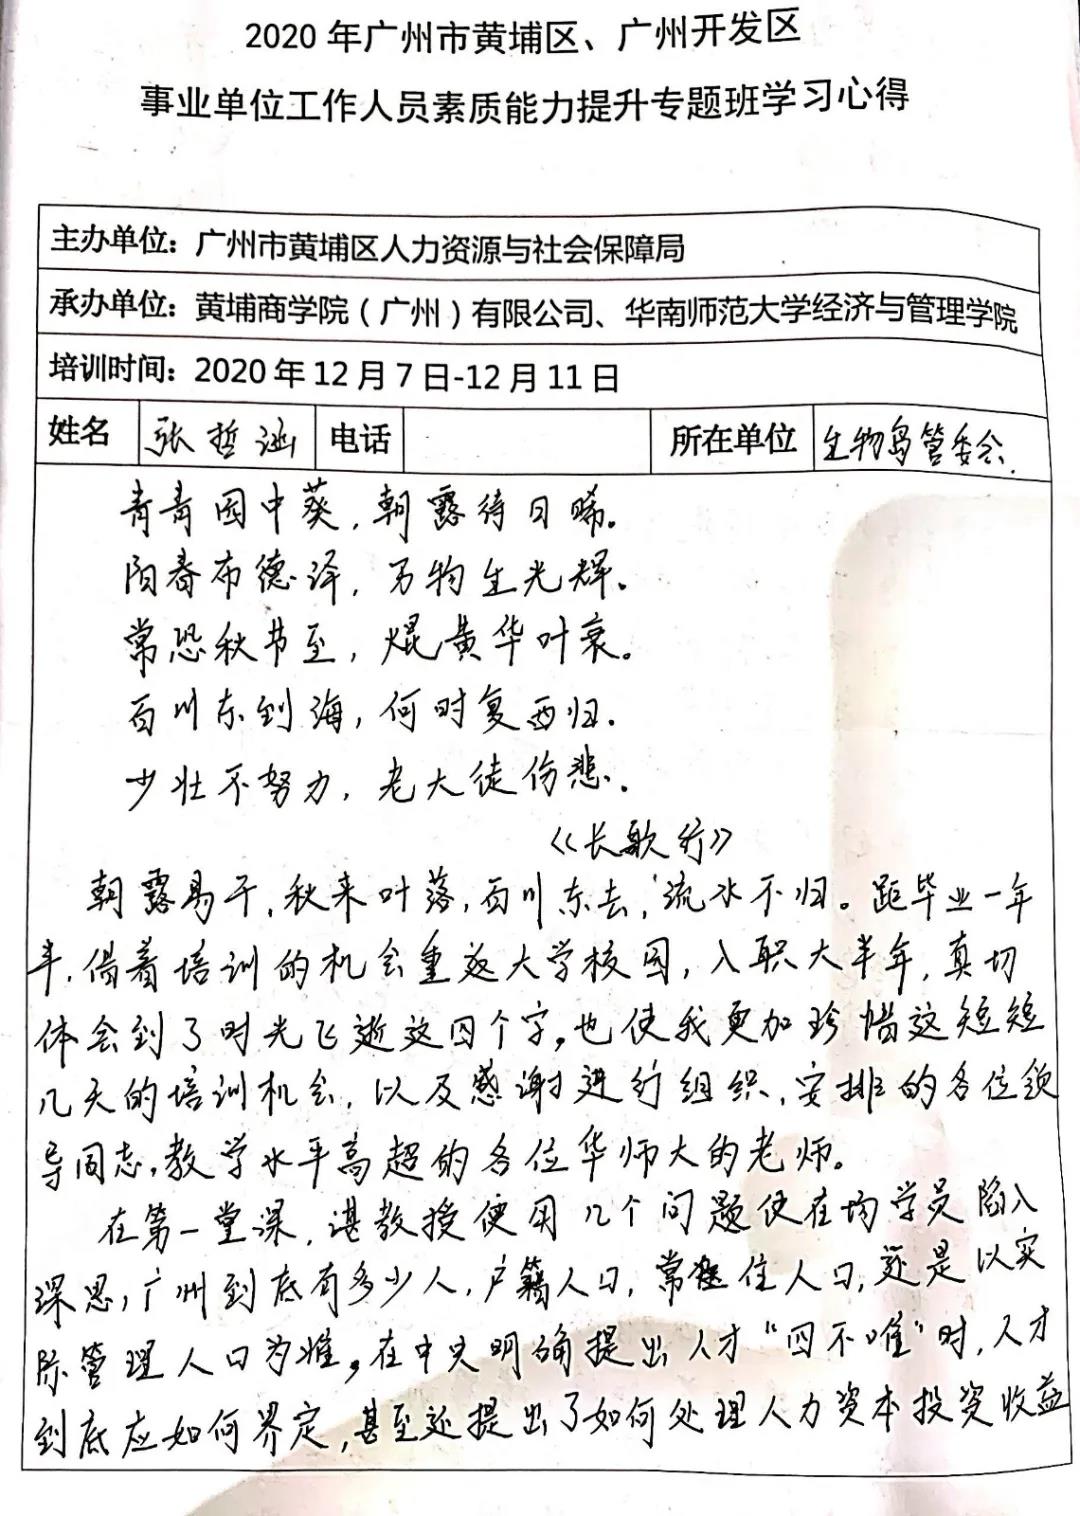 2020年广州市黄埔区、广州开发区
事业单位工作人员素质能力提升专题班学习心得
主办单位：广州市黄埔区人力资源与社会保障局
承办单位：黄埔商学院（广州）有限公司、华南师范大学经济与管理学院
培训时间：2020年12月7日-12月11日
姓名 张哲涵 电话 所在单位 生物岛管委会.
青青园中葵，朝露待日晞。
阳春布德泽，万物生光辉。
常恐秋节至，焜黄华叶衰。
百川东到海，何时复西归.
少壮不努力，老大徒伤悲.
《长歌行》
朝露易干，秋来叶落，百川东去，流水不归。距毕业一年
半，借着培训的机会重返大学校园，入职大半年，真切
体会到了时光飞逝这四个字，也使我更加珍惜这短短
几天的培训机会，以及感谢进行组织、安排的各位领
导同志，教学水平高超的各位华师大的老师。
在第一堂课，谌教授便用几个问题使在场学员陷入
深思，广州到底有多少人，户籍人口，常住人口，还是以实
际管理人口为准，在中央明确提出人才“四不唯”时，人才
到底应如何界定，甚至还提出了如何处理人力资本投资收益